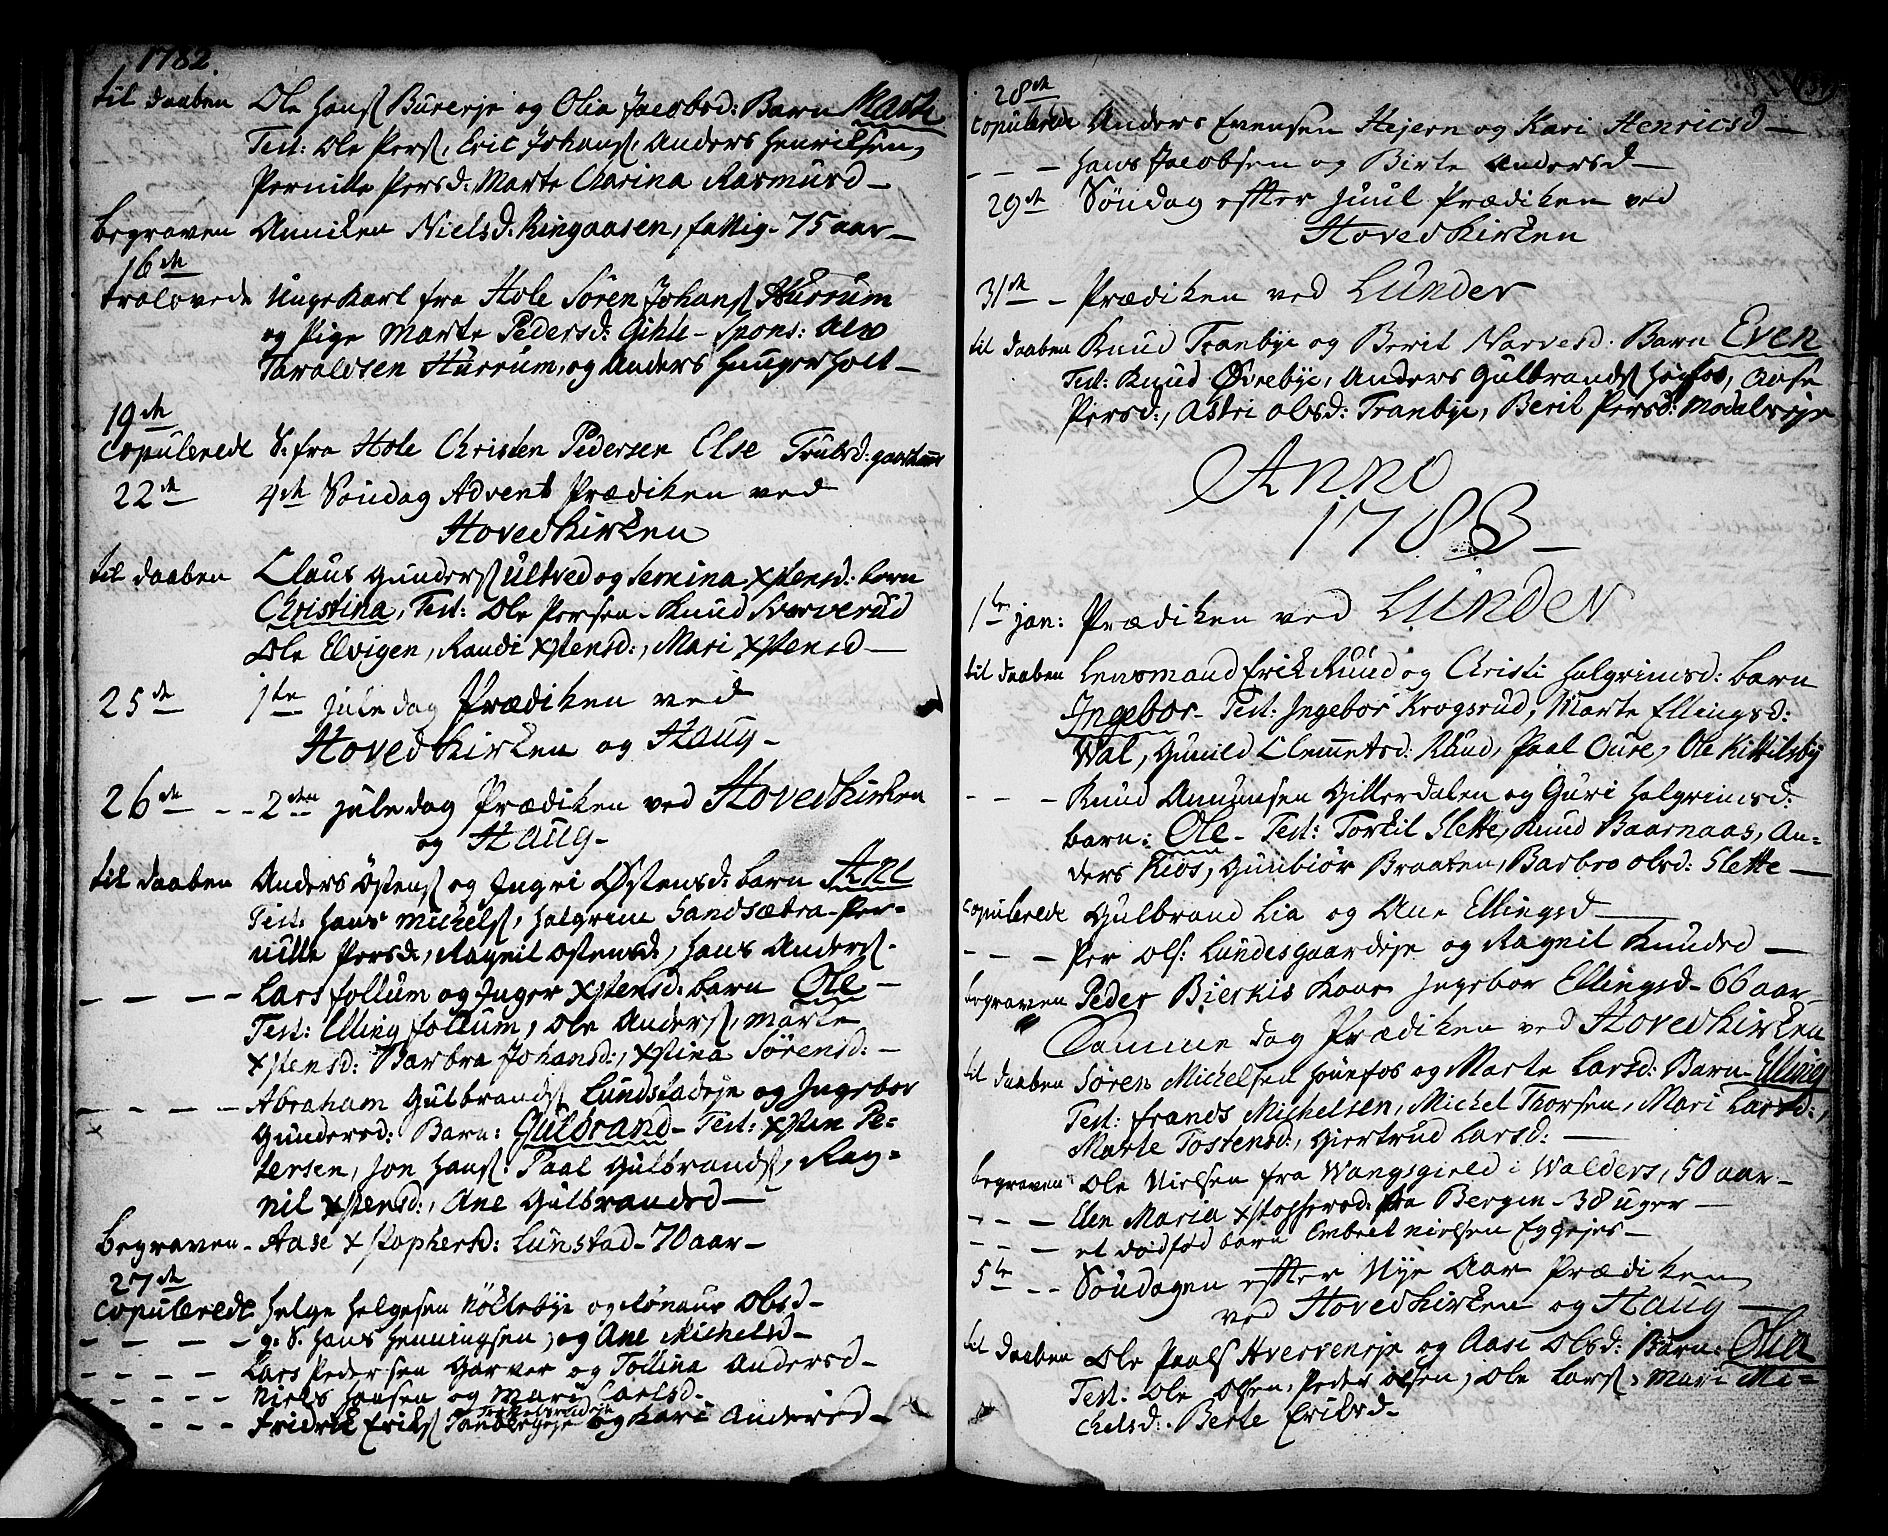 1782.
til daaben Ole Hansſ Burereje og Olia Jacobsd: Barn Marte
Test: Ole Persſ, Eric Johansſ, Anders Henrilsen,
Pernille Persd: Marte Charina Rasmusd —
begraven Anniken Nielsd. Ringaasen, fattig - 75 aar —
16de
trolovede Unge Karl fra Hole Sören Johansſ Hurrum
og Pige Marte Pedersd: Gihle - Spons: Alv
Taraldsen Hurrum, og Anders Haugerholt —
19de
Copulerede S. fra Hole Christen Pedersen Else Trulsd:
22de 4de Söndag Advent Prædiken ved
Hovedkirken
til daaben Claus Gundersſ Ultved og Semina Xstensd: barn
Christina, Test: Ole Persen - Knud Sværverud
Ole Elvigen, Randi Xstensd:, Mari Xstensd —
25de 1te juledag Prædiken ved
Hovedkirken og Haug -
26de - - 2den juledag Prædiken ved Hovedkirken
og Haug -
til daaben Anders Östensſ og Ingri Östensd: barn Ane
Test: Hans Michelsſ, Halgrim Sandsætra - Per-
nille Persd:, Ragnil Ostensd:, Hans Andersſ -
- - - - Lars Follum og Inger Xstensd: barn Ole -
Test: Elling Follum, Ole Andersſ, Marte
Xstensd: Barbra Johansd:, Xstina Sörensd: -
- - - - Abraham Gulbrandsſ Lundstadeje og Ingebor
Gundersd: Barn: Gulbrand - Test: Xsten Pe-
tersen, Jon Hansſ: Paal Gulbrandsſ, Rag-
nil Xstensd:, Ane Gulbrandsd —
begraven - Aase Xstophersd: Lunstad - 70 aar —
27de
Copulerede Helge Helgesen Nöklebye og Rönaug Olsd -
- - - - g: S. Hans Henningsen, og Ane Michelsd -
- - - - Lars Pedersen Garver og Tollina Andersd -
- - - - Niels Hansen og Mari Carlsd -
- - - - Fridrik Eriksſ og Kari Andersd -
28de
Copulerede Anders Evensen Hejern og Kari Henricsd —
- - - Hans Jacobsen og Birte Andersd —
29de Söndag efter Juul Prædiken ved
Hovedkirken
31de - Prædiken ved Lunder
til daaben Knud Tranbye og Berit Narvesd: Barn Even
Test: Knud Övrebye, Anders Gulbrandsſ Hönfos, Aase
Persd:, Astri Olsd: Tranbye, Beril Persd: Modalseje
Anno
1783 —
1te jan: Prædiken ved Lunder
til daaben Lensmand Erik Ruud og Christi Halgrimsd: barn
Ingebor - Test: Ingebor Krogsrud, Marte Ellingsd:
Wal, Gunild Clemmetsd: Ruud, Paal Aure, Ole Kittilsby
- - - Knud Amunsen Gitterdalen og Guri Halgrimsd:
barn: Ole - Test: Torkil Slette, Knud Baarnaas, An-
ders Kios, Gunbiör Braaten, Barbro Olsd: Slette —
Copulerede Gulbrand Lia og Ane Ellingsd —
- - - Per Olsſ: Lundesgaardeje og Ragnil Knudsd —
begraven Peder Bierkis Kone Ingebor Ellingsd - 66 aar -
Samme dag Prædiken ved Hovedkirken
til daaben Sören Michelsen Hönefos og Marte Larsd: Barn - Elling
Test: Frands Michelsen, Michel Thorsen, Mari Larsd:,
Marte Tostensd:, Giertrud Larsd: —
begraven Ole Nielsen fra Wangsgield i Walders, 50 aar -
- - - Elen Maria Xstoffersd: fra Bergen - 38 uger —
- - - et dödföd barn Embret Nielsen Eggejes -
5te - - Söndagen efter Nye Aar Prædiken
ved Hovedkirken og Haug —
til daaben Ole Paalsſ Hverveneje og Aase Olsd: Barn: Olia
Test: Ole Olsen, Peder Olsen, Ole Larsſ, Mari Mi-
chelsd: Berte Eriksd -